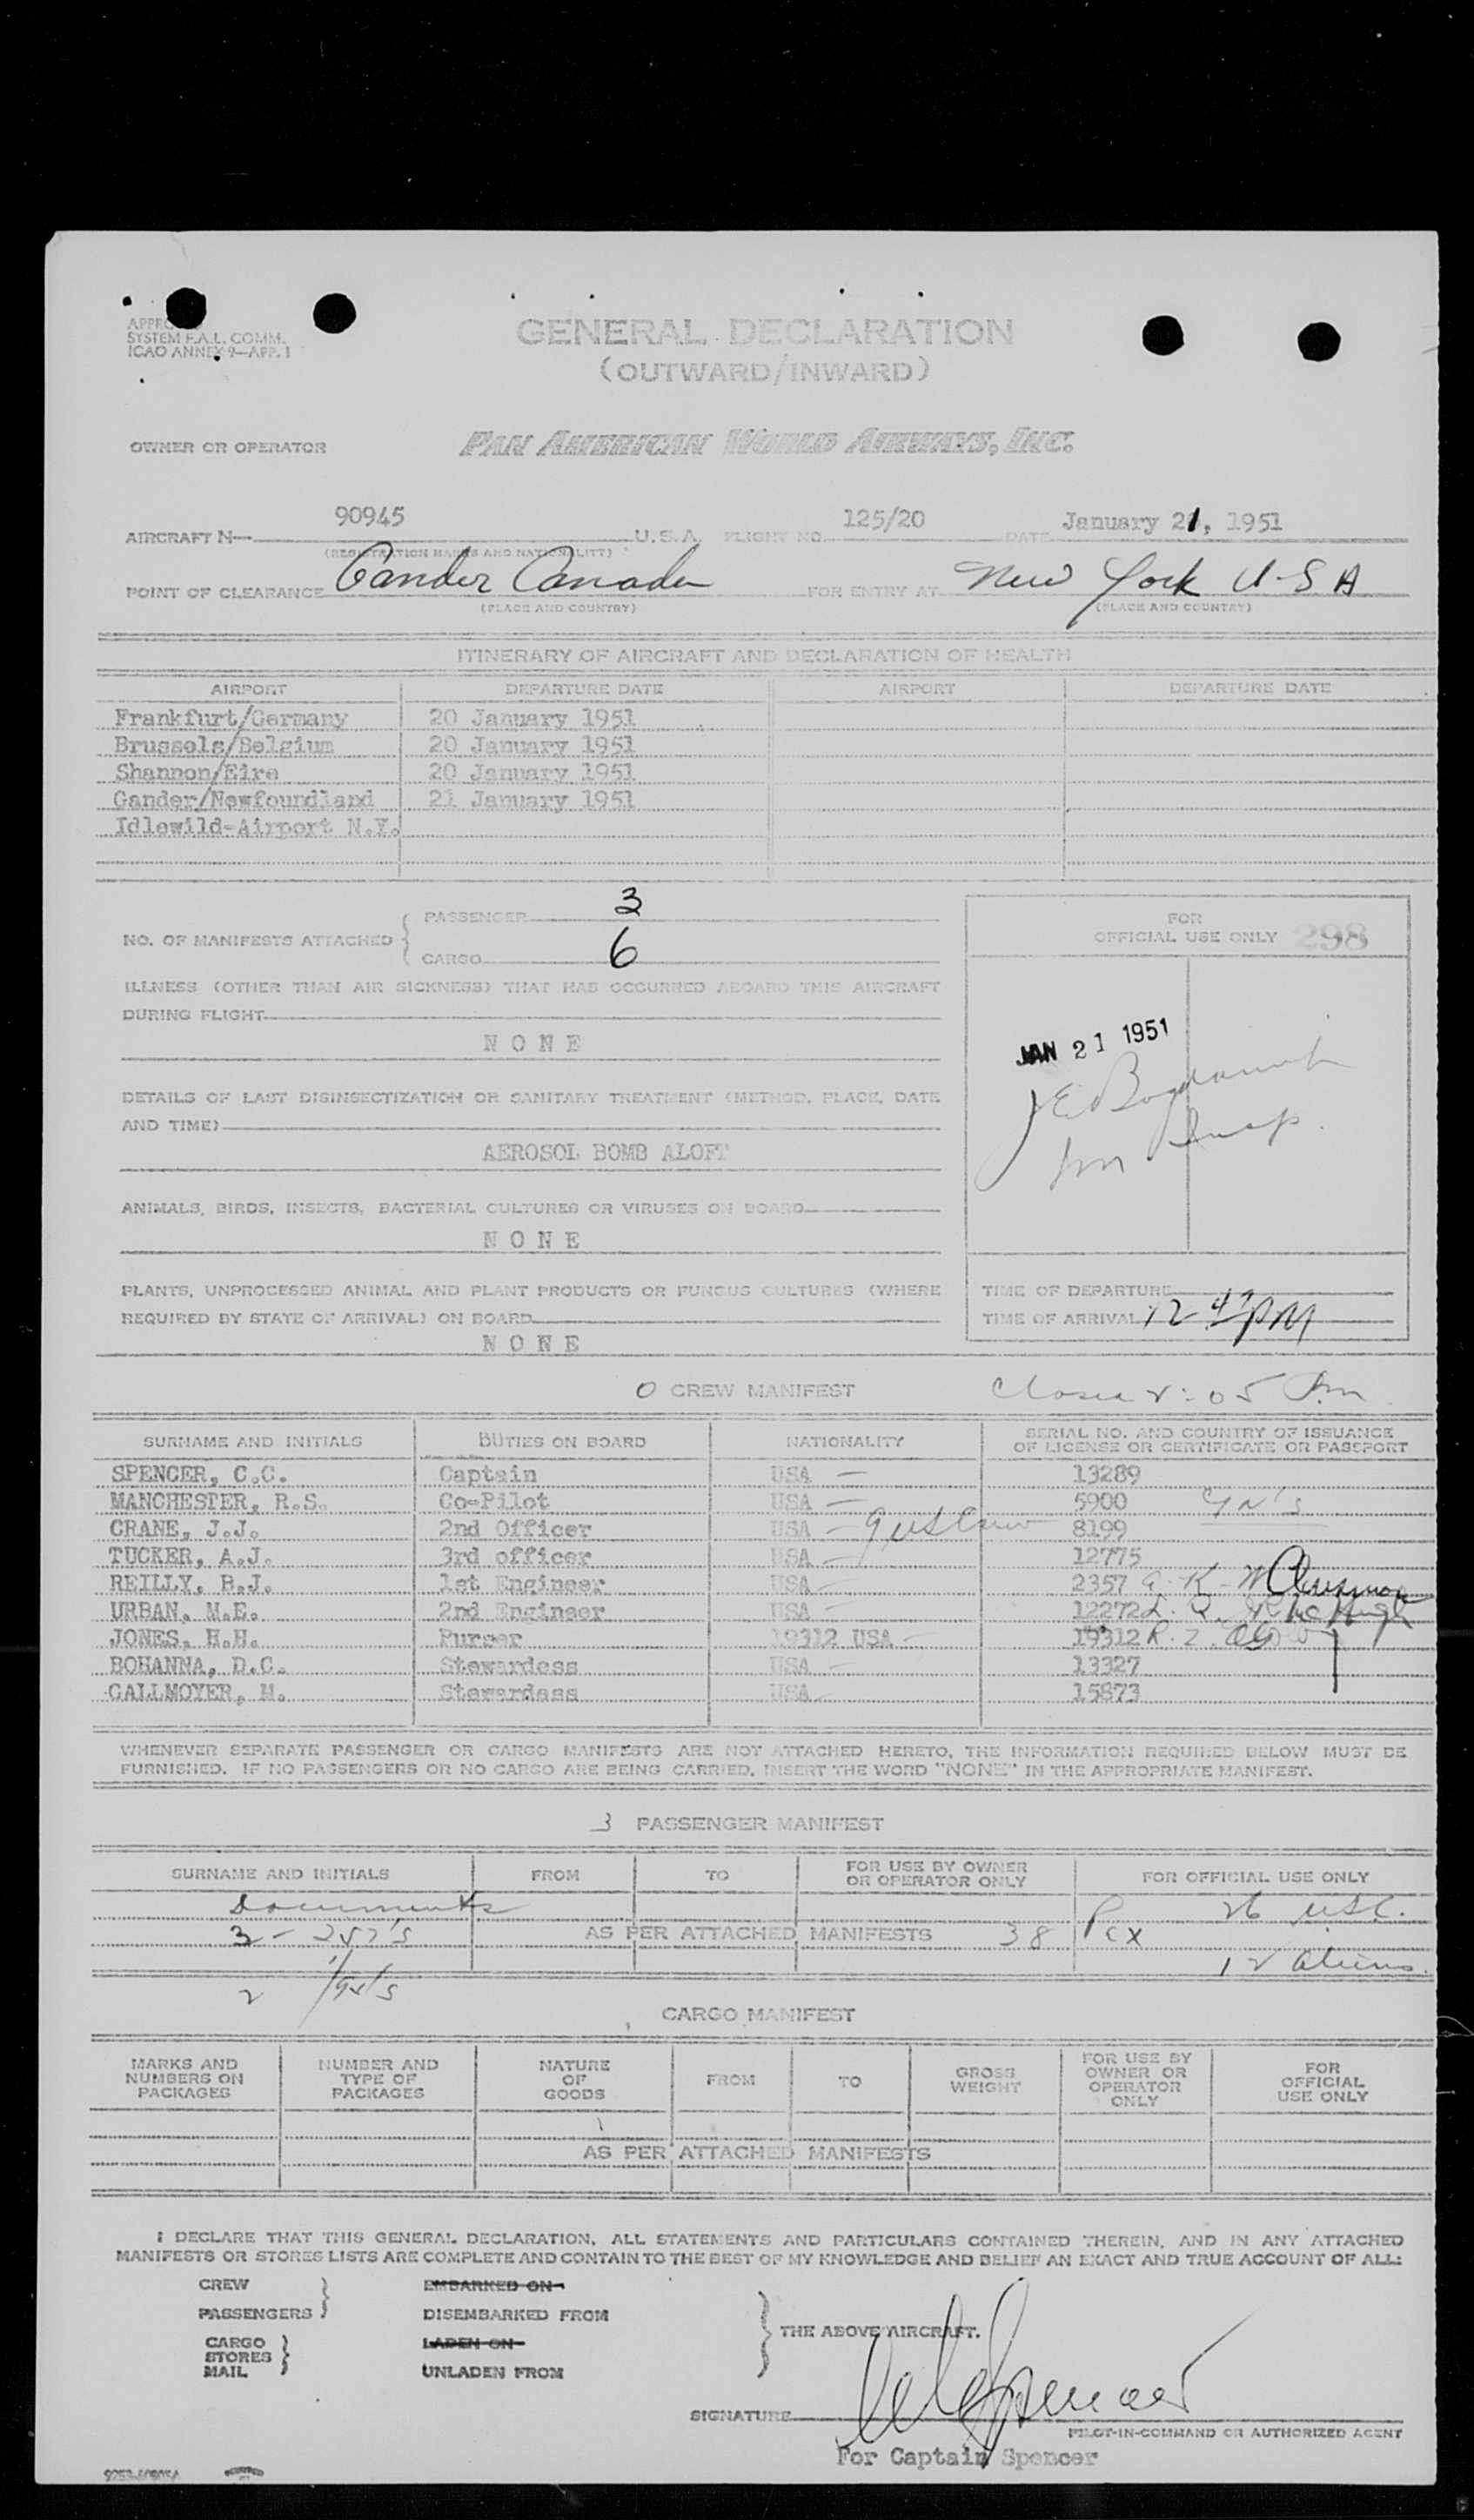 SYSTEM F.A.L. COMM.
ICAO ANNEX 9—APP. 1
GENERAL DECLARATION
(OUTWARD/INWARD)
OWNER OR OPERATOR PAN AMERICAN WORLD AIRWAYS, INC.
AIRCRAFT N— 90945 U.S.A. FLIGHT NO. 125/20 DATE January 21, 1951
(REGISTRATION MARKS AND NATIONALITY)
POINT OF CLEARANCE Gander Canada FOR ENTRY AT New York U-S A
(PLACE AND COUNTRY) (PLACE AND COUNTRY)
ITINERARY OF AIRCRAFT AND DECLARATION OF HEALTH
AIRPORT DEPARTURE DATE AIRPORT DEPARTURE DATE
Frankfurt/Germany 20 January 1951
Brussels/Belgium 20 January 1951
Shannon/Eire 20 January 1951
Gander/Newfoundland 21 January 1951
Idlewild-Airport N.Y.
NO. OF MANIFESTS ATTACHED
PASSENGER 3
CARGO 6
FOR
OFFICIAL USE ONLY 298
ILLNESS (OTHER THAN AIR SICKNESS) THAT HAS OCCURRED ABOARD THIS AIRCRAFT
DURING FLIGHT
NONE
JAN 21 1951
DETAILS OF LAST DISINSECTIZATION OR SANITARY TREATMENT (METHOD, PLACE, DATE
AND TIME)
AEROSOL BOMB ALOFT
ANIMALS, BIRDS, INSECTS, BACTERIAL CULTURES OR VIRUSES ON BOARD
NONE
PLANTS, UNPROCESSED ANIMAL AND PLANT PRODUCTS OR FUNGUS CULTURES (WHERE
REQUIRED BY STATE OF ARRIVAL) ON BOARD
NONE
TIME OF DEPARTURE
TIME OF ARRIVAL 12 47 PM
0 CREW MANIFEST
SURNAME AND INITIALS DUTIES ON BOARD NATIONALITY SERIAL NO. AND COUNTRY OF ISSUANCE
OF LICENSE OR CERTIFICATE OR PASSPORT
SPENCER, C.C. Captain USA — 13289
MANCHESTER, R.S. Co-Pilot USA — 5900
CRANE, J.J. 2nd Officer USA — 8199
TUCKER, A.J. 3rd officer USA — 12775
REILLY, B.J. 1st Engineer USA — 2357
URBAN, M.E. 2nd Engineer USA — 12272
JONES, H.H. Purser 19312 USA — 19312
BOHANNA, D.C. Stewardess USA — 13327
CALLMOYER, M. Stewardess USA — 15873
WHENEVER SEPARATE PASSENGER OR CARGO MANIFESTS ARE NOT ATTACHED HERETO, THE INFORMATION REQUIRED BELOW MUST BE
FURNISHED. IF NO PASSENGERS OR NO CARGO ARE BEING CARRIED, INSERT THE WORD "NONE" IN THE APPROPRIATE MANIFEST.
3 PASSENGER MANIFEST
SURNAME AND INITIALS FROM TO FOR USE BY OWNER
OR OPERATOR ONLY FOR OFFICIAL USE ONLY
Documents 26 USC.
3 - 257's AS PER ATTACHED MANIFESTS 38 Pax
12 aliens.
2
CARGO MANIFEST
MARKS AND
NUMBERS ON
PACKAGES
NUMBER AND
TYPE OF
PACKAGES
NATURE
OF
GOODS
FROM
TO
GROSS
WEIGHT
FOR USE BY
OWNER OR
OPERATOR
ONLY
FOR
OFFICIAL
USE ONLY
AS PER ATTACHED MANIFESTS
I DECLARE THAT THIS GENERAL DECLARATION, ALL STATEMENTS AND PARTICULARS CONTAINED THEREIN, AND IN ANY ATTACHED
MANIFESTS OR STORES LISTS ARE COMPLETE AND CONTAIN TO THE BEST OF MY KNOWLEDGE AND BELIEF AN EXACT AND TRUE ACCOUNT OF ALL:
CREW EMBARKED ON
PASSENGERS DISEMBARKED FROM
THE ABOVE AIRCRAFT.
CARGO LADEN ON
STORES
MAIL UNLADEN FROM
SIGNATURE
PILOT-IN-COMMAND OR AUTHORIZED AGENT
For Captain Spencer